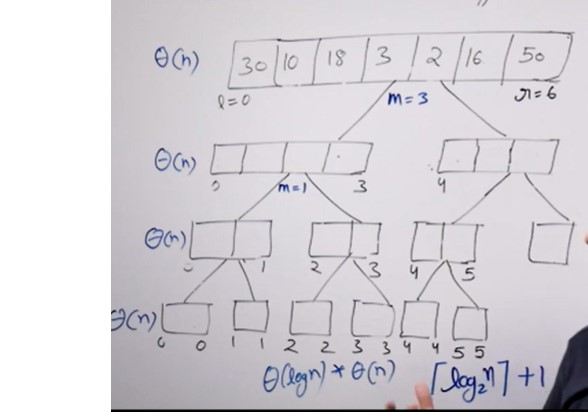 θ(n) 30 10 18 3 2 16 50
l=0 m=3 r=6
θ(n)
0 m=1 3 4
θ(n)
0 1 2 3 4 5
θ(n)
0 0 1 1 2 2 3 3 4 4 5 5
θ(logn) * θ(n) ⌈log₂n⌉ + 1